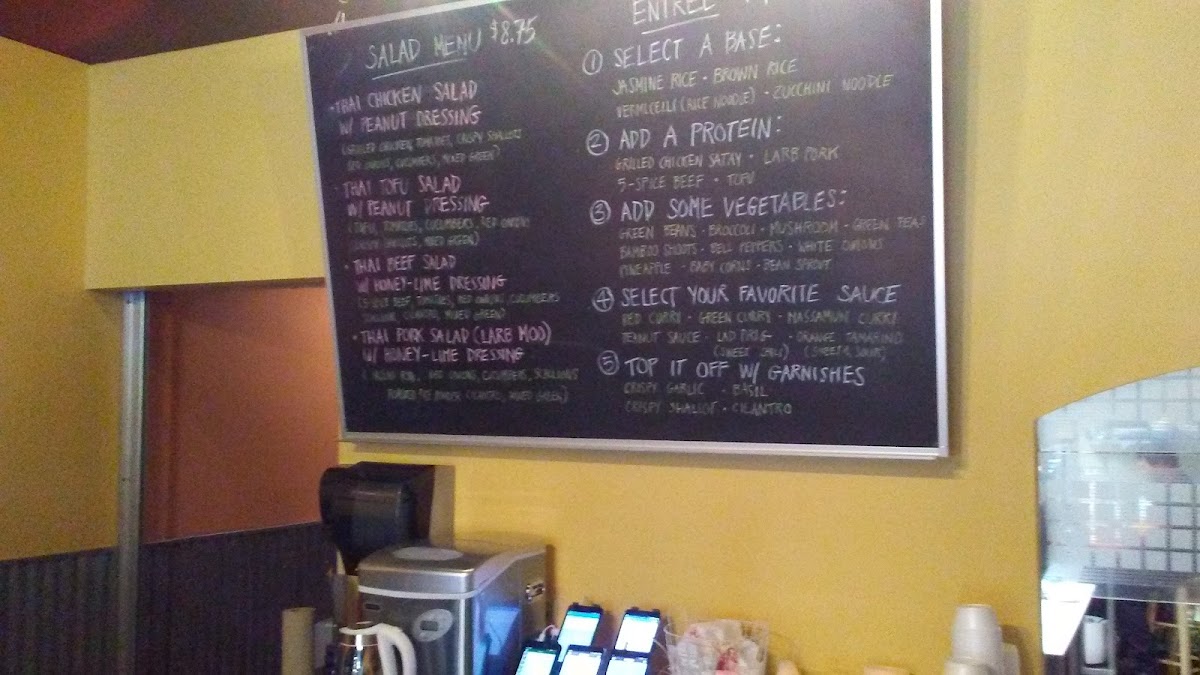 SALAD MENU $8.75
• THAI CHICKEN SALAD
W/ PEANUT DRESSING
(GRILLED CHICKEN, TOMATOES, CRISPY SHALLOTS
RED ONIONS, CUCUMBERS, MIXED GREEN)
• THAI TOFU SALAD
W/ PEANUT DRESSING
(TOFU, TOMATOES, CUCUMBERS, RED ONIONS
CRISPY SHALLOTS, MIXED GREEN)
• THAI BEEF SALAD
W/ HONEY-LIME DRESSING
BEEF, TOMATOES, RED ONIONS, CUCUMBERS
CILANTRO, MIXED GREEN)
• THAI PORK SALAD (LARB MOO)
W/ HONEY-LIME DRESSING
RED ONIONS, CUCUMBERS, SCALLIONS
CILANTRO, MIXED GREEN)
ENTREE
① SELECT A BASE:
JASMINE RICE • BROWN RICE
VERMICEILI (RICE NOODLE) • ZUCCHINI NOODLE
② ADD A PROTEIN:
GRILLED CHICKEN SATAY • LARB PORK
5-SPICE BEEF • TOFU
③ ADD SOME VEGETABLES:
GREEN BEANS • BROCCOLI • MUSHROOM • GREEN PEAS
BAMBOO SHOOTS • BELL PEPPERS • WHITE ONIONS
PINEAPPLE • BABY CORNS • BEAN SPROUT
④ SELECT YOUR FAVORITE SAUCE
RED CURRY • GREEN CURRY • MASSAMUN CURRY
PEANUT SAUCE • LAD PRIG • ORANGE TAMARIND
(SWEET CHILI) (SWEET & SOUR)
⑤ TOP IT OFF W/ GARNISHES
CRISPY GARLIC • BASIL
CRISPY SHALLOT • CILANTRO